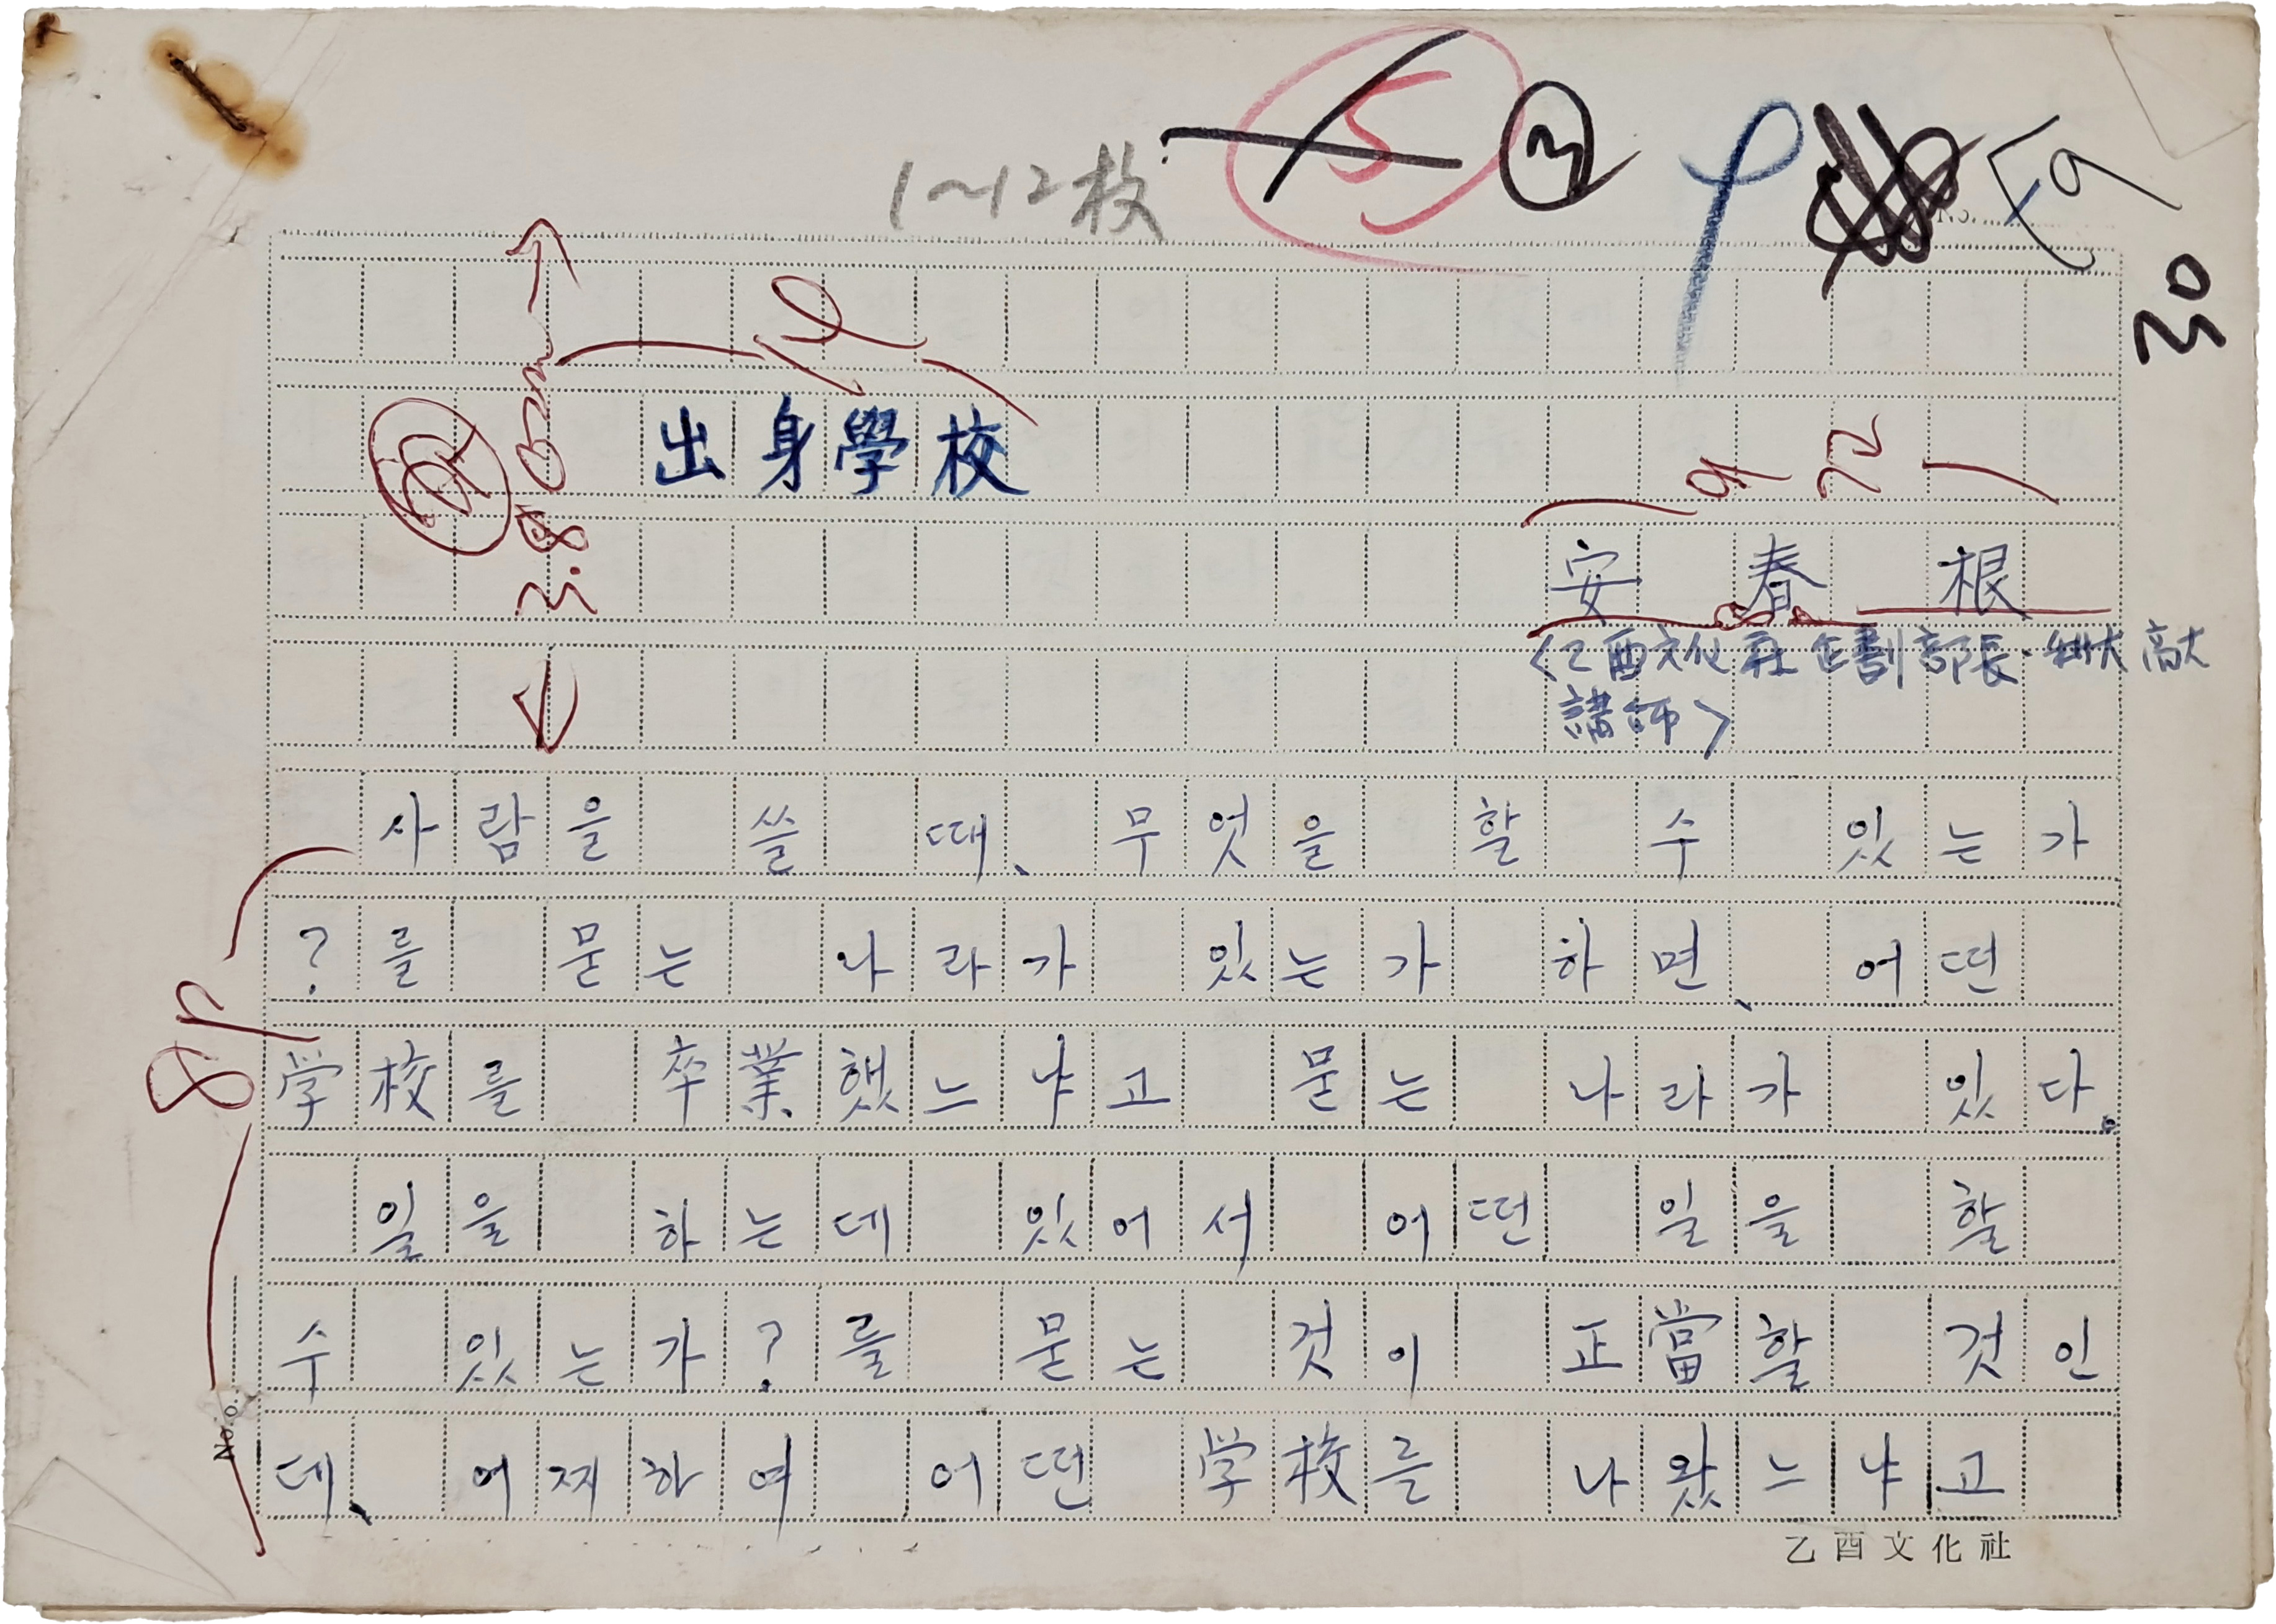 1~12枚
5
3
30
出身學校
3.8
安 春 根
<乙酉文化社 企劃部長·
講師>
사람을 쓸 때、무엇을 할 수 있는가
?를 묻는 나라가 있는가 하면、어떤
学校를 卒業했느냐고 묻는 나라가 있다。
일을 하는데 있어서 어떤 일을 할
수 있는가?를 묻는 것이 正當할 것인
데、어찌하여 어떤 学校를 나왔느냐고
8p
No.
乙酉文化社